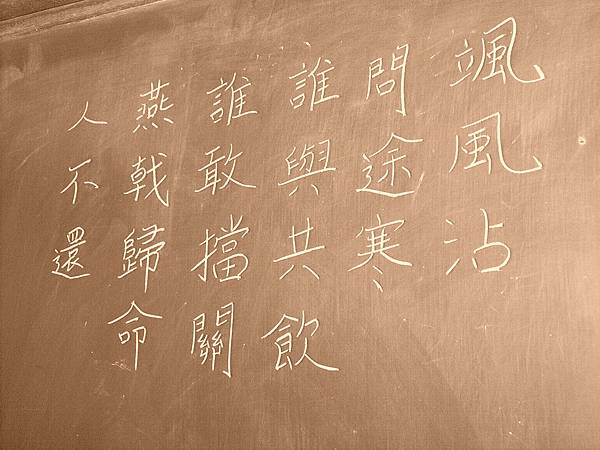 颯風沾
問途寒
誰與共飲
誰敢擋關
燕戟歸命
人不還